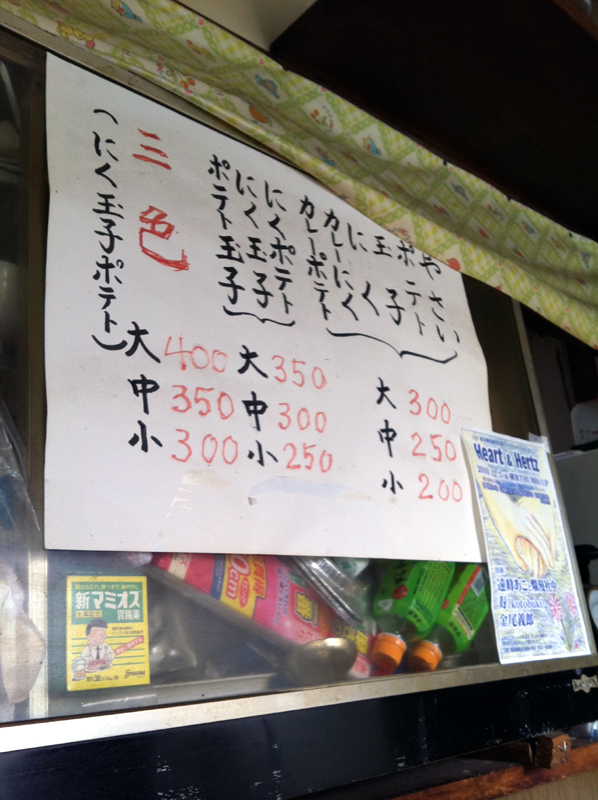 やさい
ポテト
玉子
にく
カレーにく
カレーポテト
大 300
中 250
小 200
にくポテト
にく玉子
ポテト玉子
大 350
中 300
小 250
三色
(にく玉子ポテト)
大 400
中 350
小 300
新マミオス
胃腸薬
Heart & Hertz
寿[kotobuki]
金尾義郎